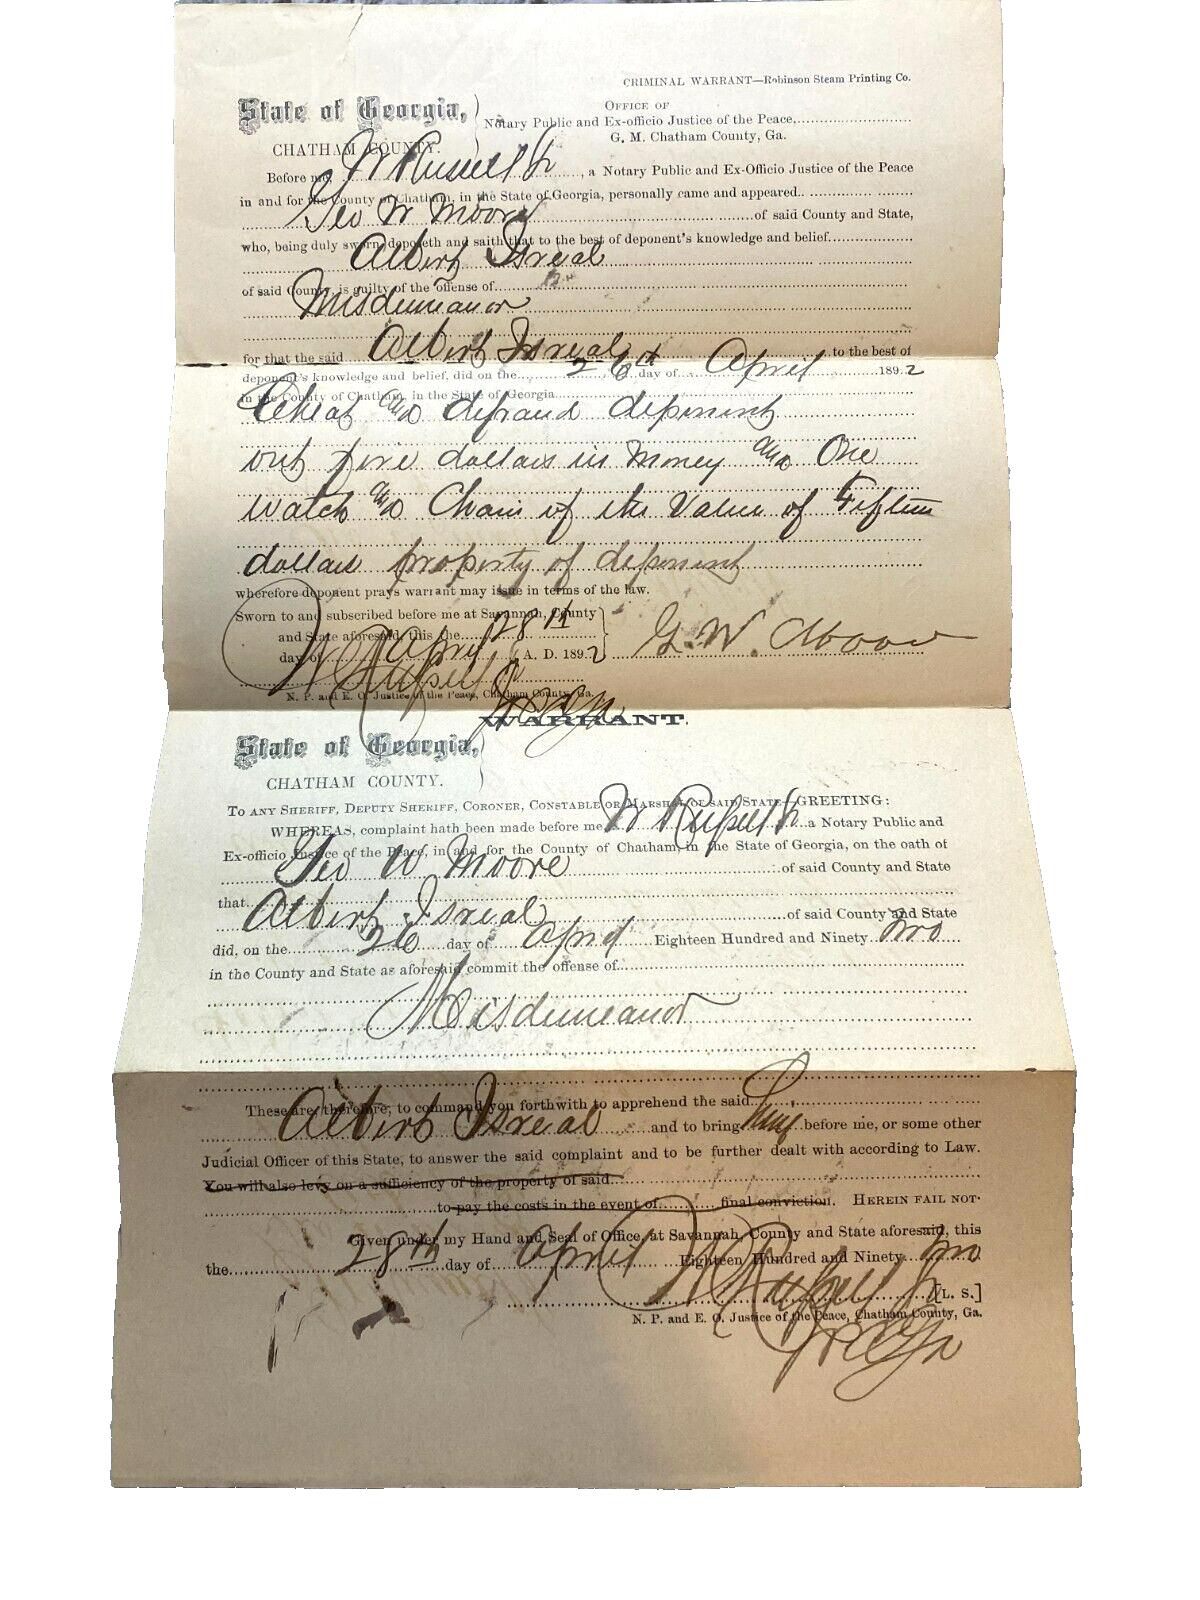 CRIMINAL WARRANT—Robinson Steam Printing Co.
State of Georgia,
CHATHAM COUNTY.
OFFICE OF
Notary Public and Ex-officio Justice of the Peace,
G. M. Chatham County, Ga.
Before me, W Russell, a Notary Public and Ex-Officio Justice of the Peace
in and for the County of Chatham, in the State of Georgia, personally came and appeared
Geo W Moore of said County and State,
who, being duly sworn, deposeth and saith that to the best of deponent's knowledge and belief
Albert Isreal
of said County, is guilty of the offense of
Misdemeanor
for that the said Albert Isreal to the best of
deponent's knowledge and belief, did on the 26th day of April 1892
in the County of Chatham, in the State of Georgia
Cheat and defraud deponent
out five dollars in Money and One
Watch and Chain of the Value of Fifteen
dollars property of deponent
wherefore deponent prays warrant may issue in terms of the law.
Sworn to and subscribed before me at Savannah, County
and State aforesaid, this the 28th
day of April A. D. 1892
G. W. Moore
W Russell
N. P. and E. O. Justice of the Peace, Chatham County, Ga.
WARRANT.
State of Georgia,
CHATHAM COUNTY.
TO ANY SHERIFF, DEPUTY SHERIFF, CORONER, CONSTABLE OR MARSHAL OF SAID STATE—GREETING:
WHEREAS, complaint hath been made before me W Russell a Notary Public and
Ex-officio Justice of the Peace, in and for the County of Chatham, in the State of Georgia, on the oath of
Geo W Moore of said County and State
that Albert Isreal of said County and State
did, on the 26 day of April Eighteen Hundred and Ninety two
in the County and State as aforesaid commit the offense of
Misdemeanor
These are, therefore, to command you forthwith to apprehend the said
Albert Isreal and to bring him before me, or some other
Judicial Officer of this State, to answer the said complaint and to be further dealt with according to Law.
You will also levy on a sufficiency of the property of said
to pay the costs in the event of final conviction. HEREIN FAIL NOT.
Given under my Hand and Seal of Office, at Savannah, County and State aforesaid, this
the 28th day of April Eighteen Hundred and Ninety two
W Russell [L. S.]
N. P. and E. O. Justice of the Peace, Chatham County, Ga.